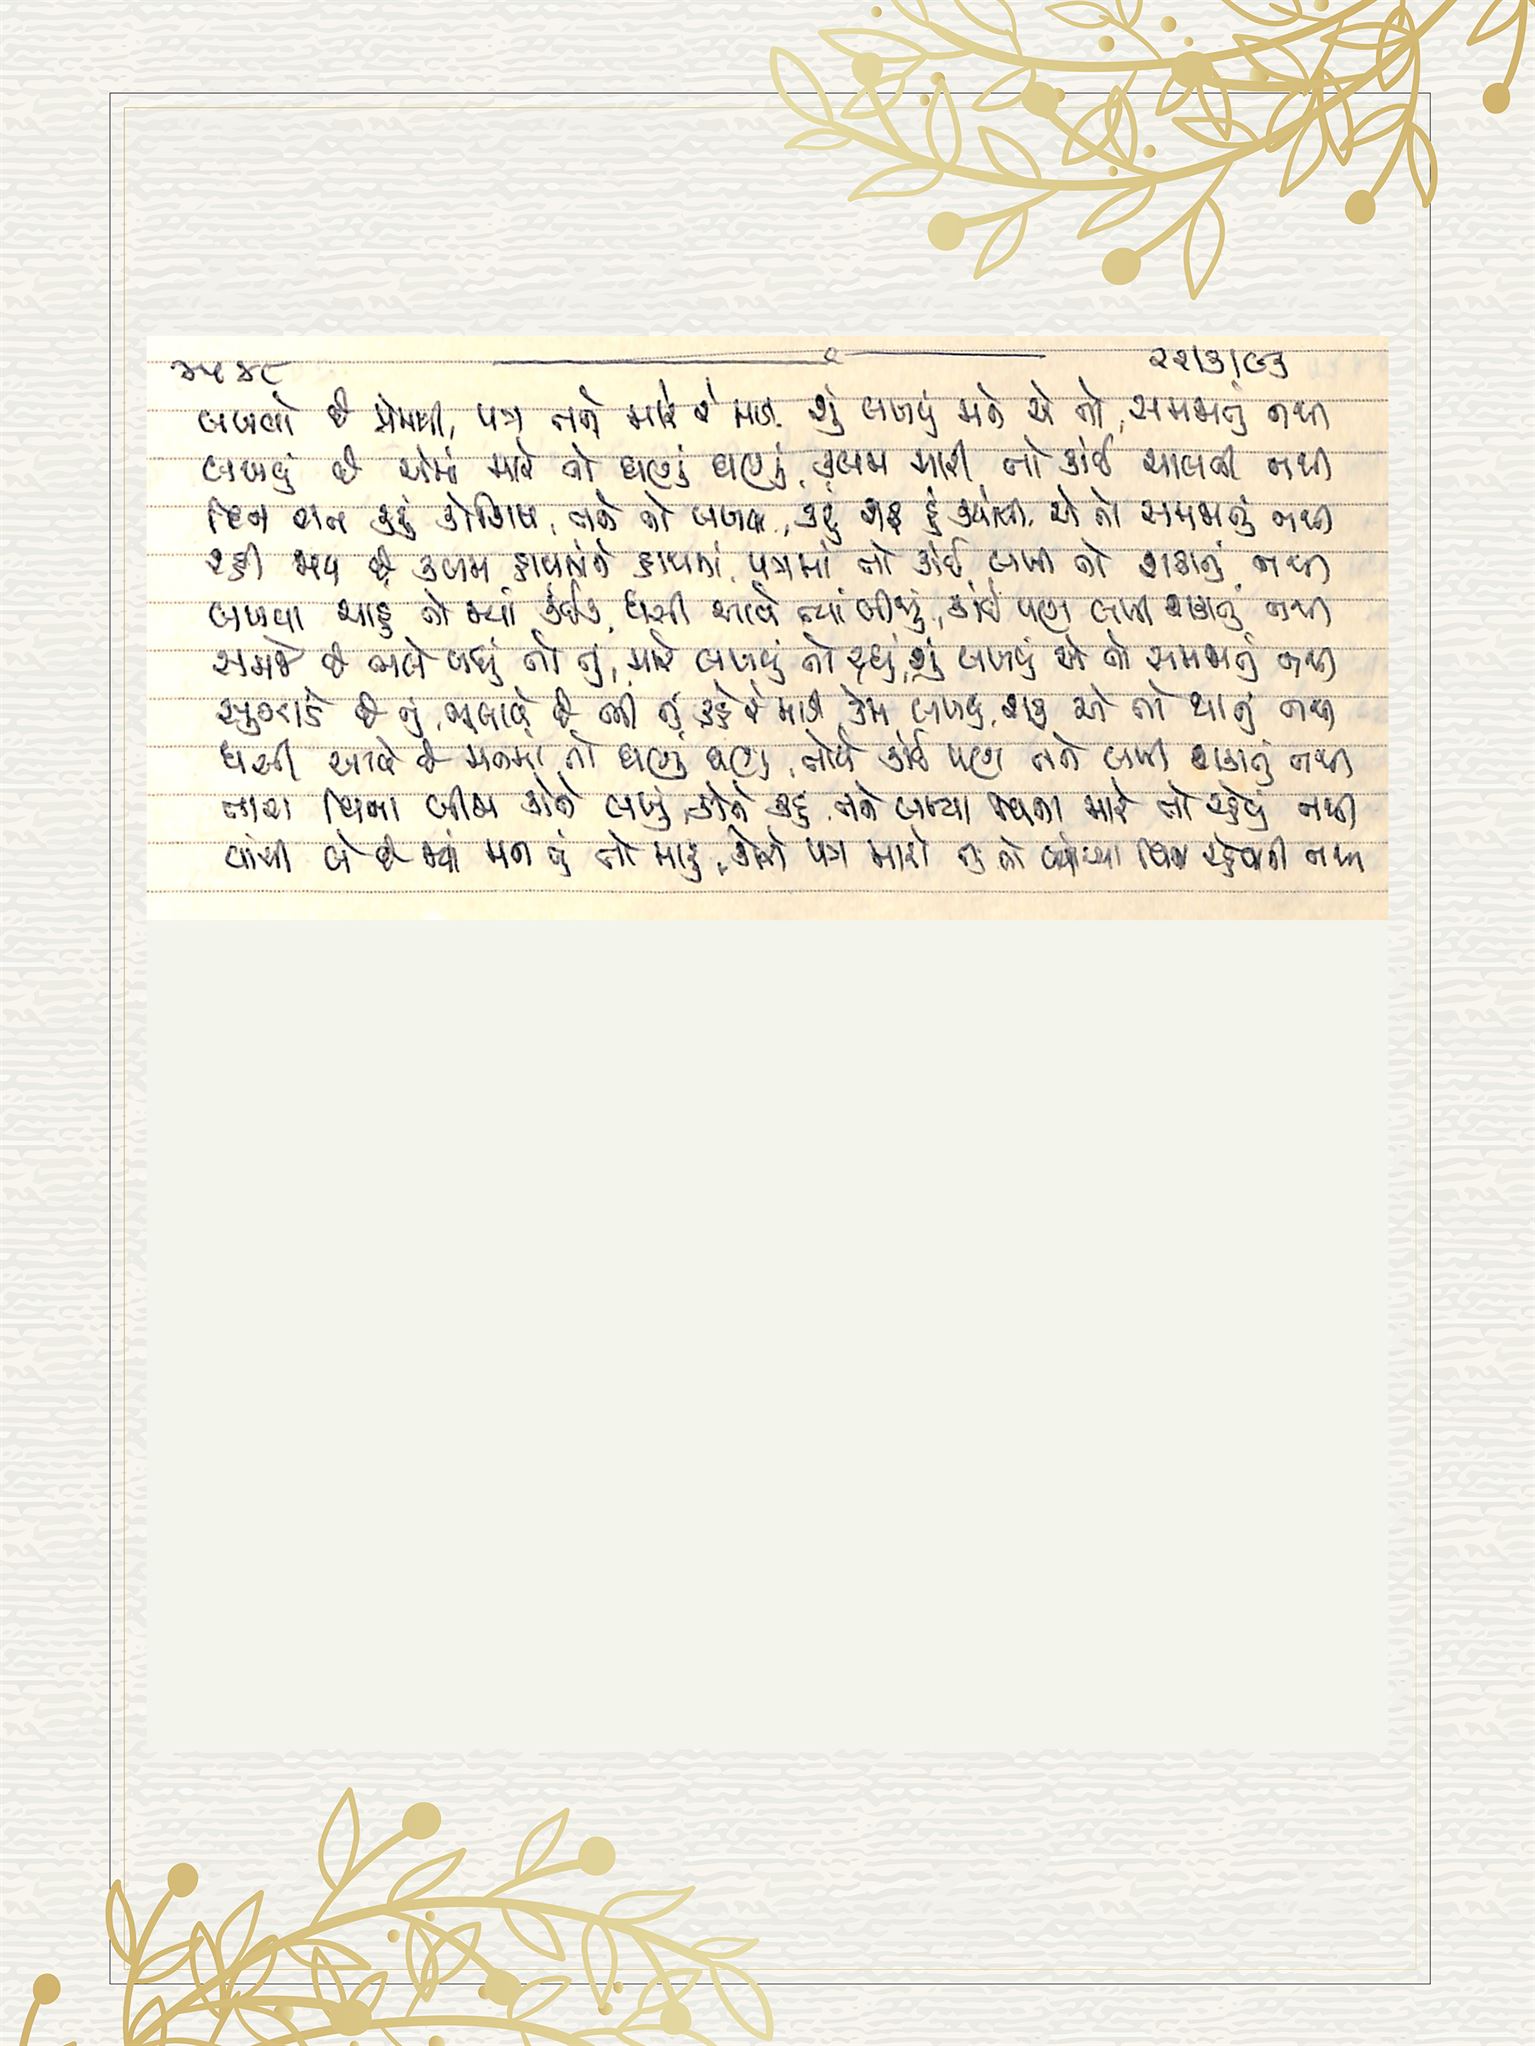 ૪૫૪૯ ૨૨/૩/૯૩
લખવો છે પ્રેમથી, પત્ર તને મારે રે માત, શું લખવું મને એ તો, સમજાતું નથી
લખવું છે એમાં મારે તો ઘણું ઘણું, કલમ મારી તો કાંઈ ચાલતી નથી
દિન રાત કરું કોશિશ, તને તો લખવા, કરું શરૂ હું ક્યાંથી, એ તો સમજાતું નથી
રહી જાય છે કલમ હાથની હાથમાં, પત્રમાં તો કાંઈ લખી તો શકાતું નથી
લખવા ચાહું તો જ્યાં કંઈક, ધસી આવે ત્યાં બીજું, કાંઈ પણ લખી શકાતું નથી
સમજે છે ભલે બધું તો તું, મારે લખવું તો રહ્યું, શું લખવું એ તો સમજાતું નથી
સુઝાડે છે તું, ભુલાવે છે ભી તું, કહે રે માત, કેમ લખવું, શરૂ એ તો થાતું નથી
ધસી આવે છે મનમાં તો ઘણું ઘણું, તોયે કાંઈ પણ તને લખી શકાતું નથી
તારા વિના બીજા કોને લખું, કોને કહું, તને લખ્યા વિના મારે તો રહેવું નથી
વાંચી લે છે જ્યાં મન તું તો મારું, તોયે પત્ર મારો તું તો વાંચ્યા વિના રહેવાની નથી